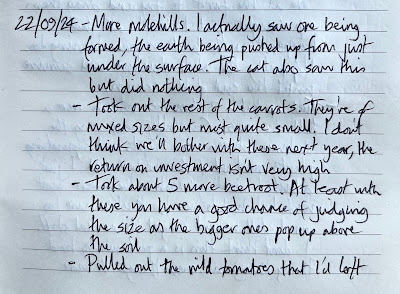 22/09/24 - More molehills. I actually saw one being
formed, the earth being pushed up from just
under the surface. The cat also saw this
but did nothing
- Took out the rest of the carrots. They're of
mixed sizes but most quite small. I don't
think we'll bother with these next year, the
return on investment isn't very high
- Took about 5 more beetroot. At least with
these you have a good chance of judging
the size as the bigger ones pop up above
the soil
- Pulled out the wild tomatoes that I'd left